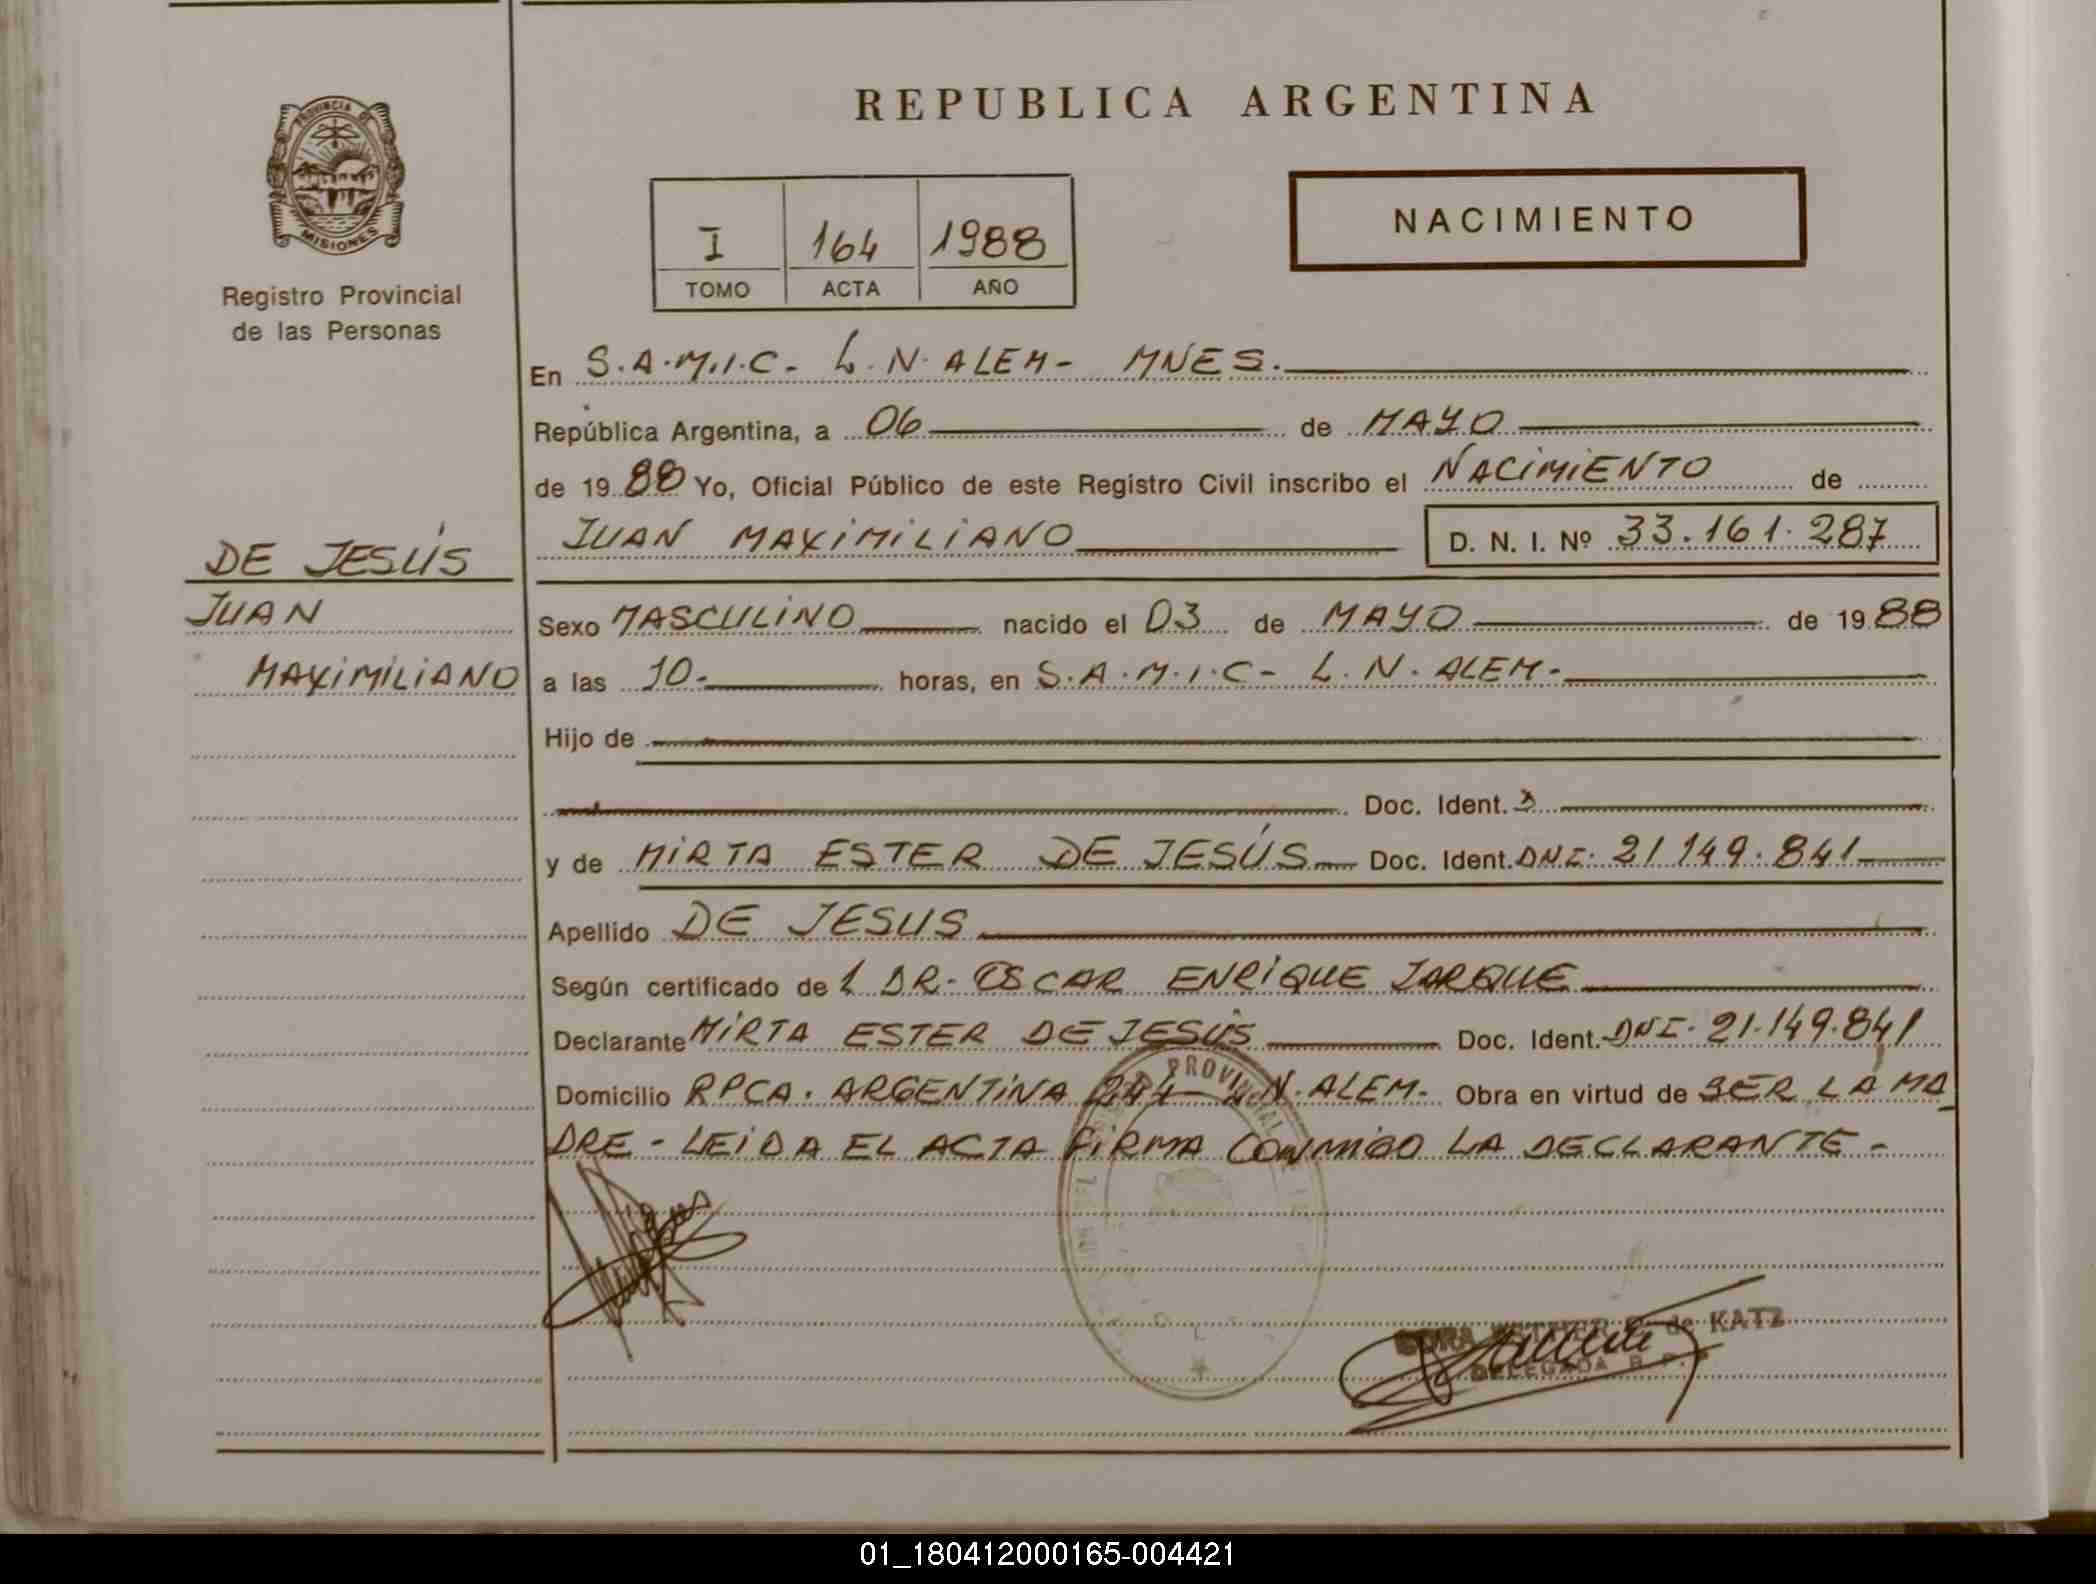 PROVINCIA DE
MISIONES
Registro Provincial
de las Personas
DE JESÚS
JUAN
MAXIMILIANO
REPUBLICA ARGENTINA
I 164 1988
TOMO ACTA AÑO
NACIMIENTO
En S.A.M.I.C- L.N. ALEM- MNES.
República Argentina, a 06 de MAYO
de 1988 Yo, Oficial Público de este Registro Civil inscribo el NACIMIENTO de
JUAN MAXIMILIANO D. N. I. Nº 33.161.287
Sexo MASCULINO nacido el 03 de MAYO de 1988
a las 10- horas, en S.A.M.I.C- L.N. ALEM-
Hijo de
Doc. Ident.
y de MIRTA ESTER DE JESÚS Doc. Ident. DNI. 21.149.841
Apellido DE JESUS
Según certificado de l DR. OSCAR ENRIQUE JARQUE
Declarante MIRTA ESTER DE JESÚS Doc. Ident. DNI. 21.149.841
Domicilio RPCA. ARGENTINA 244 L.N. ALEM- Obra en virtud de SER LA MA
DRE - LEIDA EL ACTA FIRMA CONMIGO LA DECLARANTE-
PROVINCIAL
de KATZ
DELEGADA
01_180412000165-004421